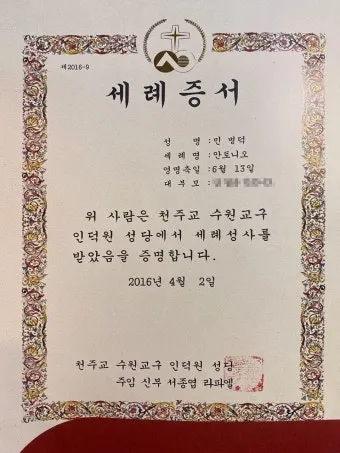 제2016-9
세례증서
성 명 : 민병덕
세 례 명 : 안토니오
영명축일 : 6월 13일
대 부 모 :
위 사람은 천주교 수원교구
인덕원 성당에서 세례성사를
받았음을 증명합니다.
2016년 4월 2일
천주교 수원교구 인덕원 성당
주임 신부 서종엽 라파엘